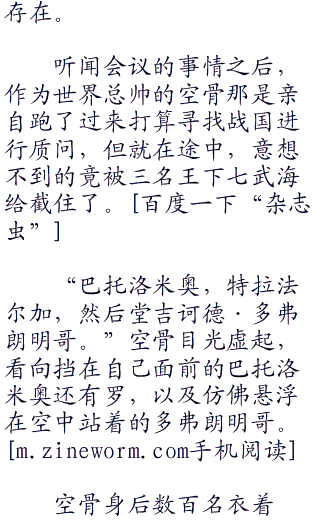 存在。
听闻会议的事情之后，
作为世界总帅的空骨那是亲
自跑了过来打算寻找战国进
行质问，但就在途中，意想
不到的竟被三名王下七武海
给截住了。[百度一下“杂志
虫”]
“巴托洛米奥，特拉法
尔加，然后堂吉诃德·多弗
朗明哥。”空骨目光虚起，
看向挡在自己面前的巴托洛
米奥还有罗，以及仿佛悬浮
在空中站着的多弗朗明哥。
[m.zineworm.com手机阅读]
空骨身后数百名衣着